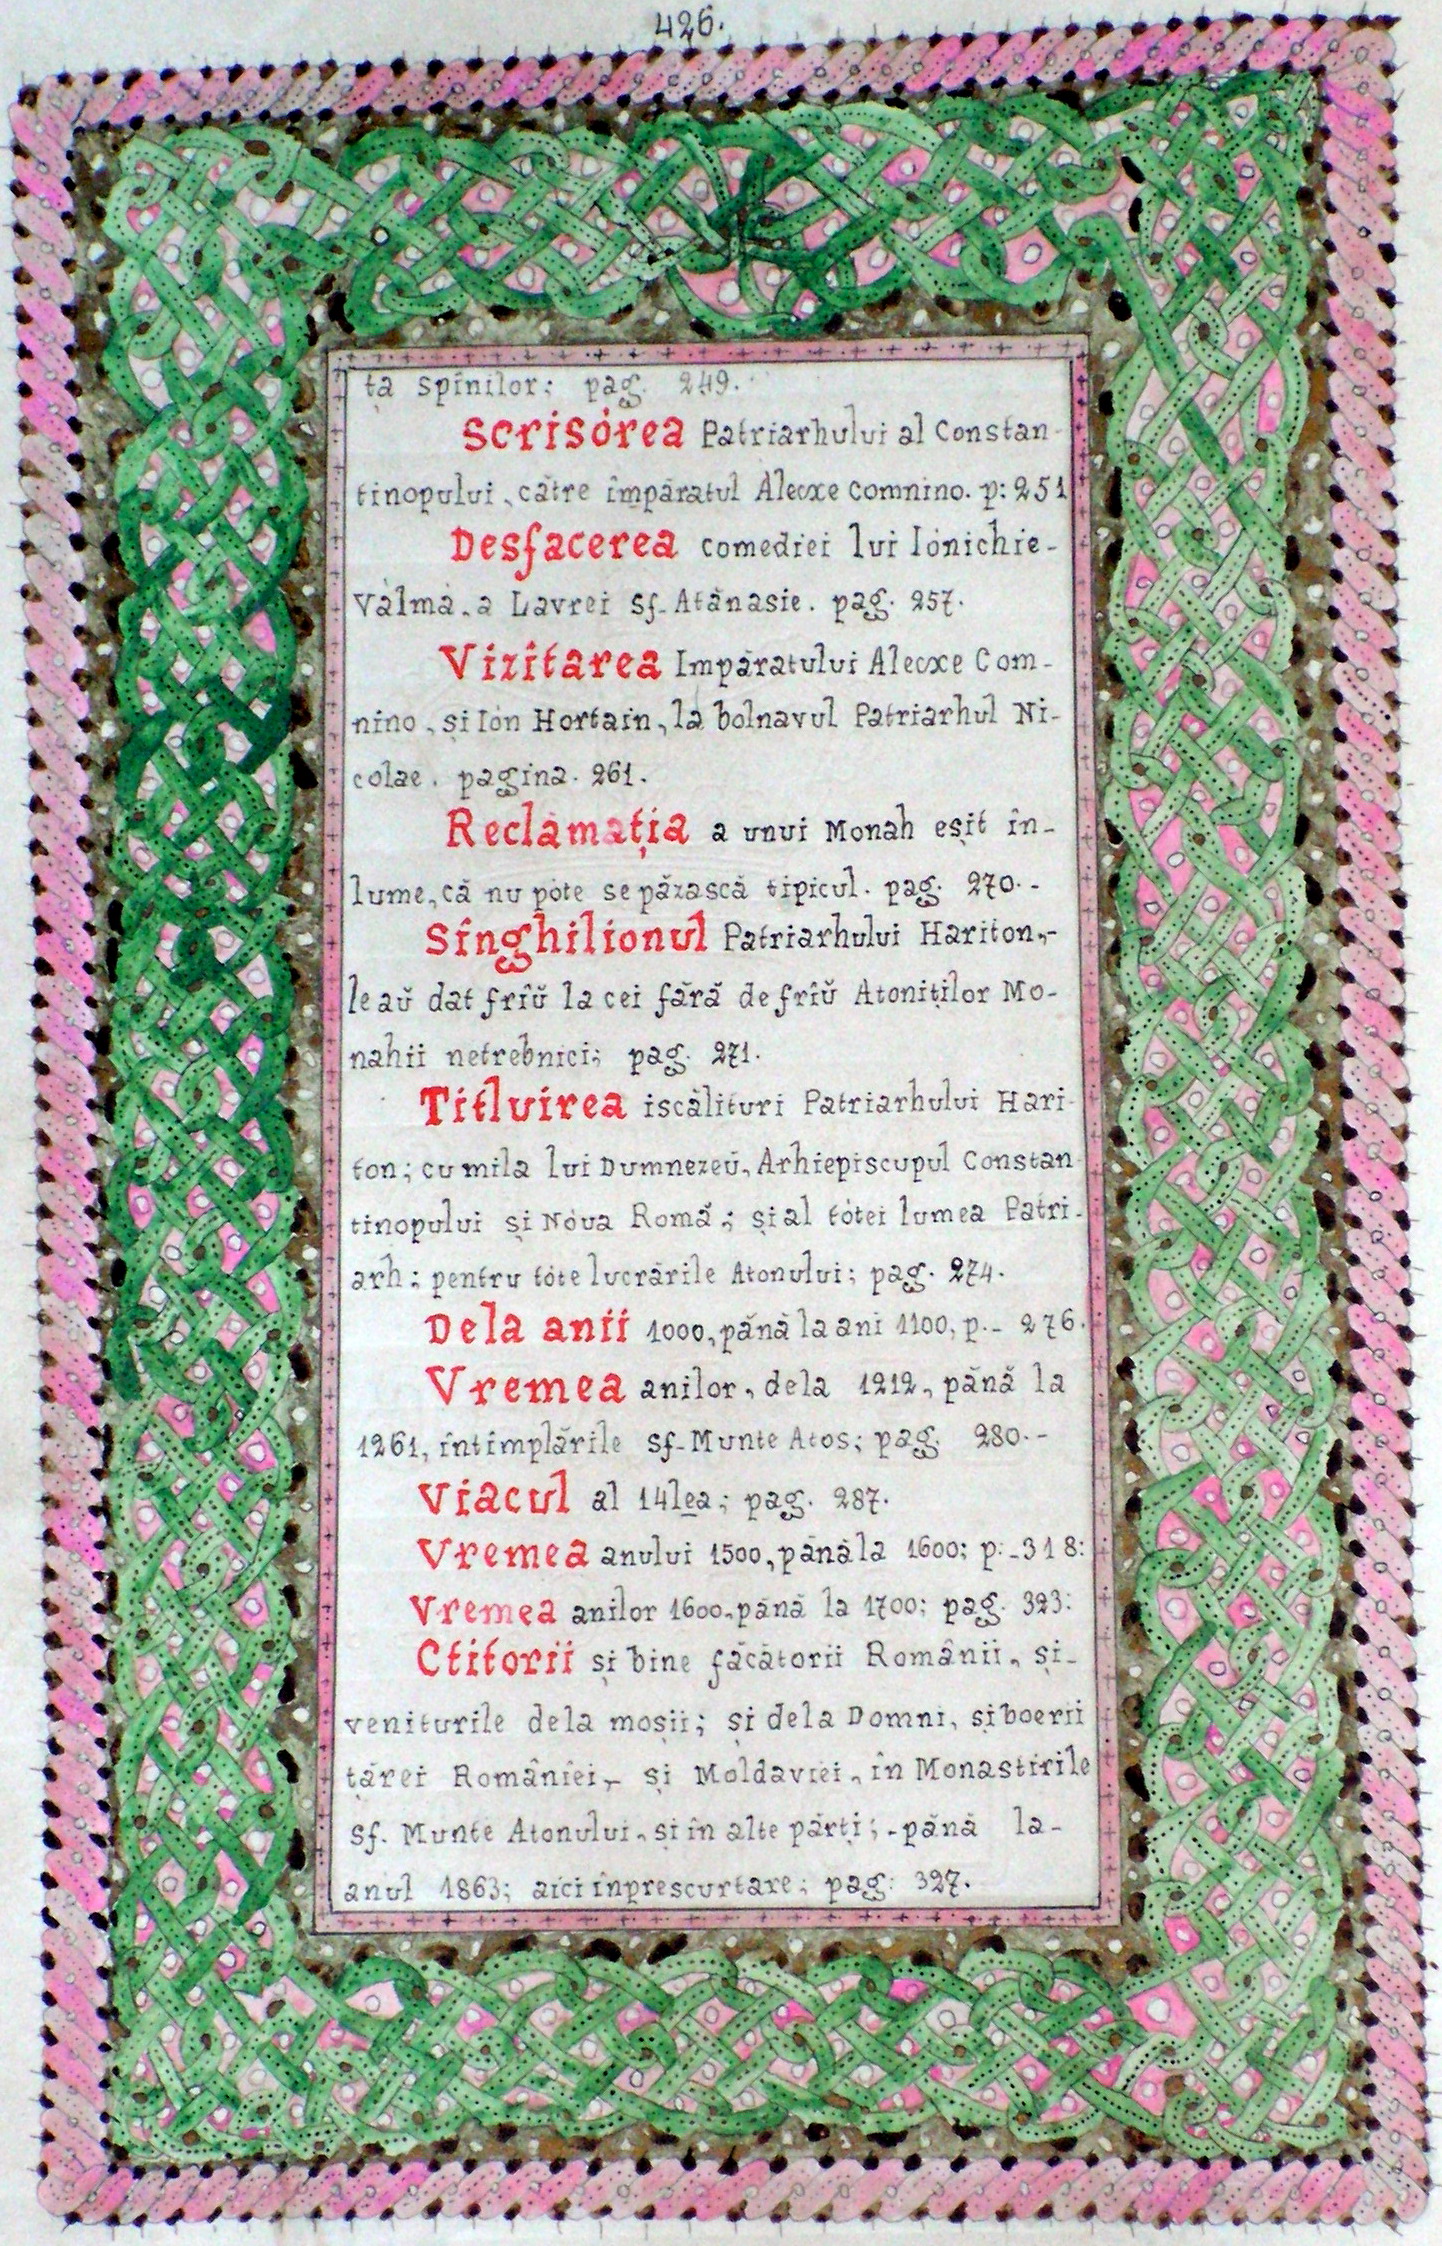 426.
ța spinilor; pag. 249.
Scrisórea Patriarhului al Constan
tinopului, cătrе împăratul Alecxe Comnino. p: 251
Desfacerea comediei lui Iónichie-
Válma, a Lavrei Sf. Atănasie. pag. 257.
Vizitarea Impăratului Alecxe Com-
nino, și Ión Hortain, la bolnavul Patriarhul Ni-
colae. pagina. 261.
Reclamația a unui Monah eșit în-
lume, că nu póte se păzască tipicul. pag. 270.-
Sînghilionul Patriarhului Hariton,-
le aŭ dat frîŭ la cei fără de frîŭ Atoniților Mo-
nahii netrebnici; pag. 271.
Titluirea iscălituri Patriarhului Hari-
ton; cu mila lui Dumnezeŭ, Arhiepiscupul Constan
tinopului și Nóua Romă; și al tótei lumea Patri-
arh; pentru tóte lucrările Atonului; pag. 274.
Dela anii 1000, pănă la ani 1100, p.- 276.
Vremea anilor, dela 1212, pănă la
1261, întîmplările sf. Munte Atos; pag. 280.-
Viacul al 14lea; pag. 287.
Vremea anului 1500, pănă la 1600; p.-318:
Vremea anilor 1600, pănă la 1700; pag. 323:
Ctitorii și bine făcătorii Românii, și-
veniturile dela moșii; și dela Domni, și boerii
țărei Românîei, și Moldaviei, în Monastirile
Sf. Munte Atonului, și în alte părți;-pănă la-
anul 1863; aici înprescurtare; pag: 327.